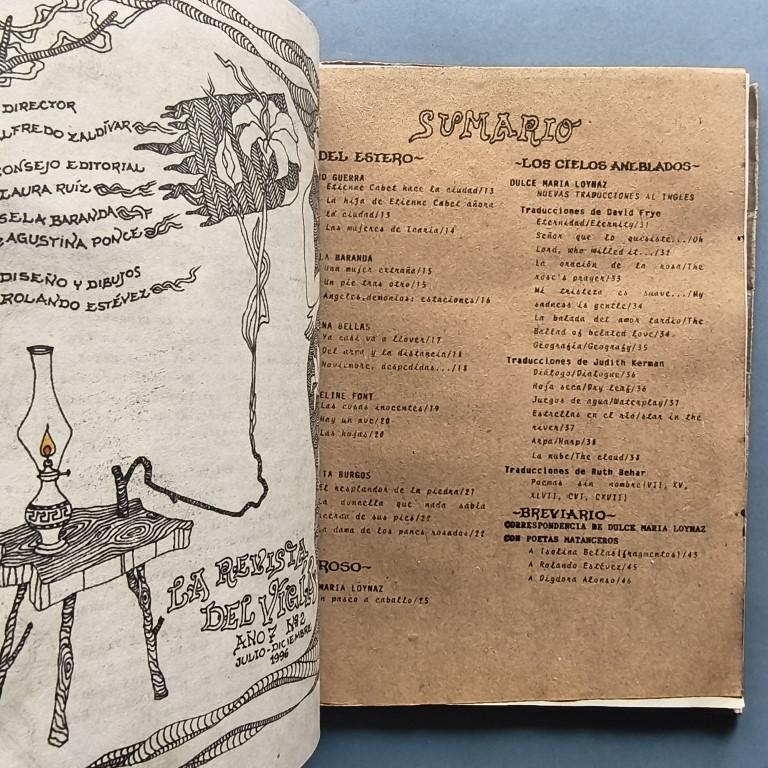 DIRECTOR
ALFREDO ZALDÍVAR
CONSEJO EDITORIAL
LAURA RUÍZ
SELA BARANDA
AGUSTINA PONCE
DISEÑO Y DIBUJOS
ROLANDO ESTÉVEZ
LA REVISTA
DEL VIGÍA
AÑO 7 Nº 2
JULIO-DICIEMBRE
1996
SUMARIO
DEL ESTERO~
O GUERRA
Etienne Cabet hace la ciudad/13
La hija de Etienne Cabet añora
la ciudad/13
Las mujeres de Icaria/14
LA BARANDA
Una mujer extraña/15
Un pie tras otro/15
Angeles, demonios: estaciones/16
NA BELLAS
Ya casi va a llover/17
Del arpa y la distancia/18
Noviembre, despedidas.../18
ELINE FONT
Las cosas inocentes/19
Hay un ave/20
Las hojas/20
TA BURGOS
El resplandor de la piedra/21
La doncella que nada sabía
acerca de sus pies/22
La dama de los panes rosados/22
ROSO~
MARIA LOYNAZ
n paseo a caballo/25
~LOS CIELOS ANEBLADOS~
DULCE MARIA LOYNAZ
NUEVAS TRADUCCIONES AL INGLES
Traducciones de David Frye
Eternidad/Eternity/31
Señor que lo quisiste.../Oh
Lord, who willed it.../32
La oración de la rosa/The
rose's prayer/33
Mi tristeza es suave.../My
sadness is gentle/34
La balada del amor tardío/The
Ballad of belated love/34
Geografía/Geografy/35
Traducciones de Judith Kerman
Diálogo/Dialogue/36
Hoja seca/Dry leaf/36
Juegos de agua/Waterplay/37
Estrellas en el río/star in the
river/37
Arpa/Harp/38
La nube/The cloud/38
Traducciones de Ruth Behar
Poemas sin nombre(VII, XV,
XLVII, CVI, CXVII)
~BREVIARIO~
CORRESPONDENCIA DE DULCE MARIA LOYNAZ
CON POETAS MATANCEROS
A Isolina Bellas(fragmentos)/43
A Rolando Estévez/45
A Digdora Alonso/46